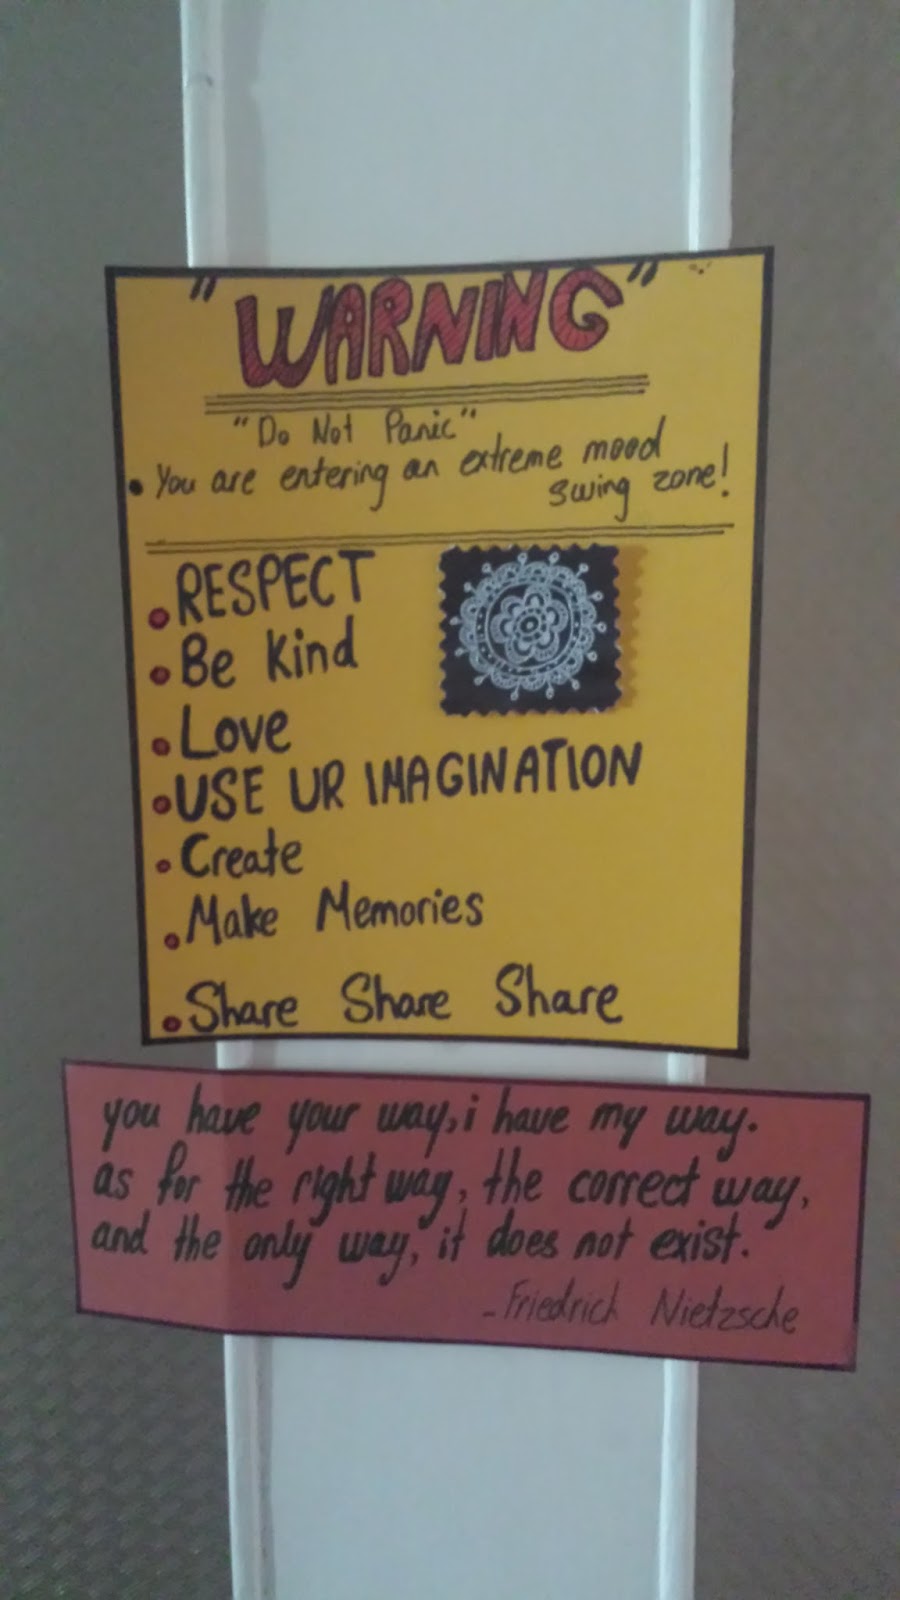 "WARNING"
"Do Not Panic"
• You are entering an extreme mood
swing zone!
• RESPECT
• Be Kind
• Love
• USE UR IMAGINATION
• Create
• Make Memories
• Share Share Share
you have your way, i have my way.
as for the right way, the correct way,
and the only way, it does not exist.
- Friedrich Nietzsche